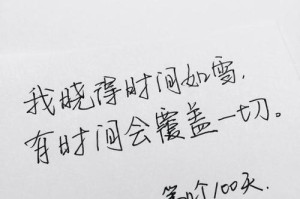 我晓得时间如雪,
有时间会覆盖一切。
100天.